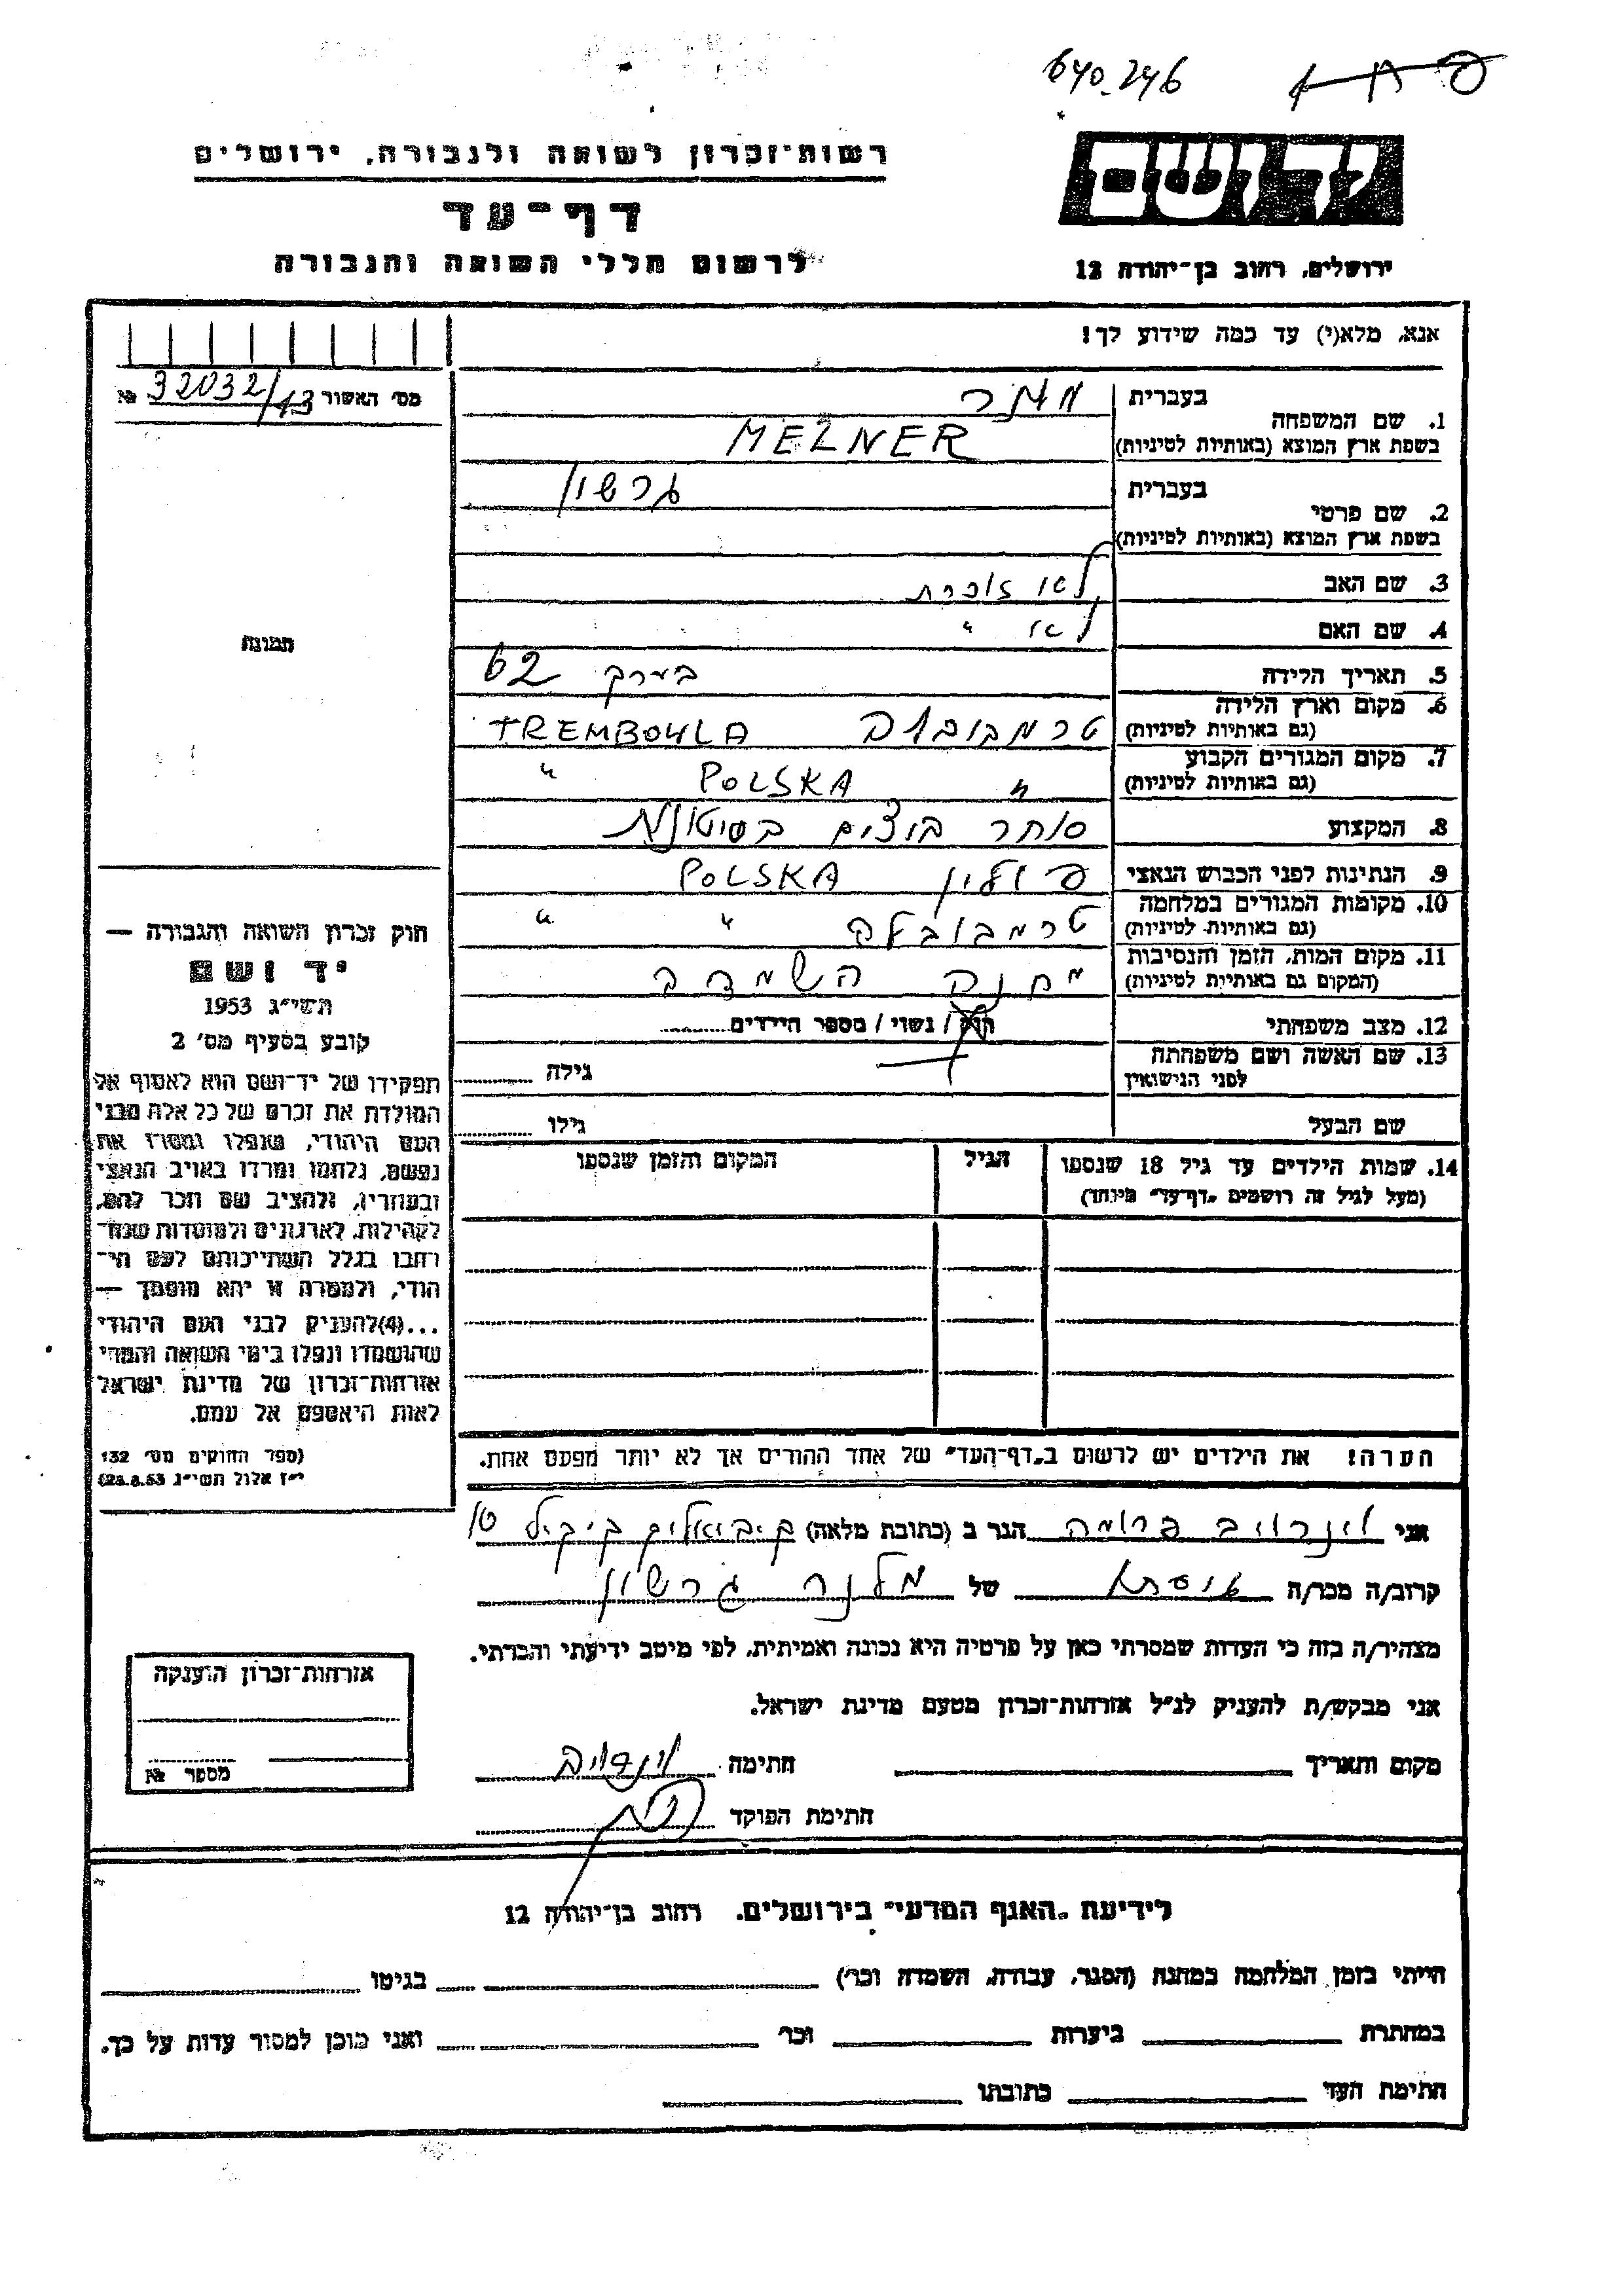 640.246
יד ושם
רשות־זכרון לשואה ולגבורה, ירושלים
דף־עד
לרשום חללי השואה והגבורה
ירושלים, רחוב בן־יהודה 12
אנא, מלא(י) עד כמה שידוע לך!
מס׳ האשור № 32032/13
1. שם המשפחה בעברית מלנר
בשפת ארץ המוצא (באותיות לטיניות) MELNER
2. שם פרטי בעברית גרשון
בשפת ארץ המוצא (באותיות לטיניות)
3. שם האב לא זוכרת
4. שם האם לא "
5. תאריך הלידה בערך 62
6. מקום וארץ הלידה (גם באותיות לטיניות) טרמבובלה TREMBOWLA
7. מקום המגורים הקבוע (גם באותיות לטיניות) " POLSKA "
8. המקצוע סוחר ביצים בסיטונות
9. הנתינות לפני הכבוש הנאצי פולין POLSKA
10. מקומות המגורים במלחמה (גם באותיות לטיניות) טרמבובלה " "
11. מקום המות, הזמן והנסיבות (המקום גם באותיות לטיניות) מחנה השמדה
12. מצב משפחתי רווק / נשוי / מספר הילדים
13. שם האשה ושם משפחתה לפני הנישואין גילה
שם הבעל גילו
14. שמות הילדים עד גיל 18 שנספו הגיל המקום והזמן שנספו
(מעל לגיל זה רושמים „דף־עד״ מיוחד)
הערה! את הילדים יש לרשום ב„דף־העד״ של אחד ההורים אך לא יותר מפעם אחת.
תמונה
חוק זכרון השואה והגבורה —
יד ושם
תשי״ג 1953
קובע בסעיף מס׳ 2
תפקידו של יד־ושם הוא לאסוף אל
המולדת את זכרם של כל אלה מבני
העם היהודי, שנפלו ומסרו את
נפשם, נלחמו ומרדו באויב הנאצי
ובעוזריו, ולהציב שם וזכר להם,
לקהילות, לארגונים ולמוסדות שנח־
רבו בגלל השתייכותם לעם הי־
הודי, ולמטרה זו יהא מוסמך —
...(4)להעניק לבני העם היהודי
שהושמדו ונפלו בימי השואה והמרי
אזרחות־זכרון של מדינת ישראל
לאות היאספם אל עמם.
(ספר החוקים מס׳ 132
י״ז אלול תשי״ג 28.8.53)
אני וינרויב ברומה הגר ב (כתובת מלאה)
קרוב/ה מכר/ה של מלנר גרשון
מצהיר/ה בזה כי העדות שמסרתי כאן על פרטיה היא נכונה ואמיתית, לפי מיטב ידיעתי והכרתי.
אני מבקש/ת להעניק לנ״ל אזרחות־זכרון מטעם מדינת ישראל.
מקום ותאריך חתימה
חתימת הפוקד
אזרחות־זכרון הוענקה
מספר №
לידיעת „האגף המדעי״ בירושלים, רחוב בן־יהודה 12
הייתי בזמן המלחמה במחנה (הסגר, עבודה, השמדה וכו׳) בגיטו
במחתרת ביערות וכו׳ ואני מוכן למסור עדות על כך.
חתימת העד כתובתו